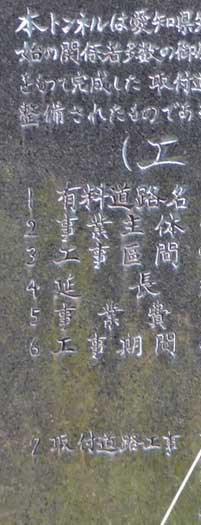 本トンネルは愛知県知
始め関係者多数の御
をもって完成した取付道
整備されたものであ
(工
1 有料道路名
2 事業主体
3 工事区間
4 延長
5 事業費
6 工事期間
7 取付道路工事